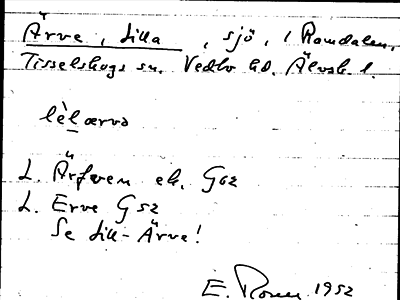 Ärve, Lilla, sjö, i Ramdalen,
Tisselskogs sn. Vedbo hd. Älvsb. l.
lèlærvə
L. Ärfven ek. G62
L. Erve G52
Se Lill-Ärve!
E. 1952